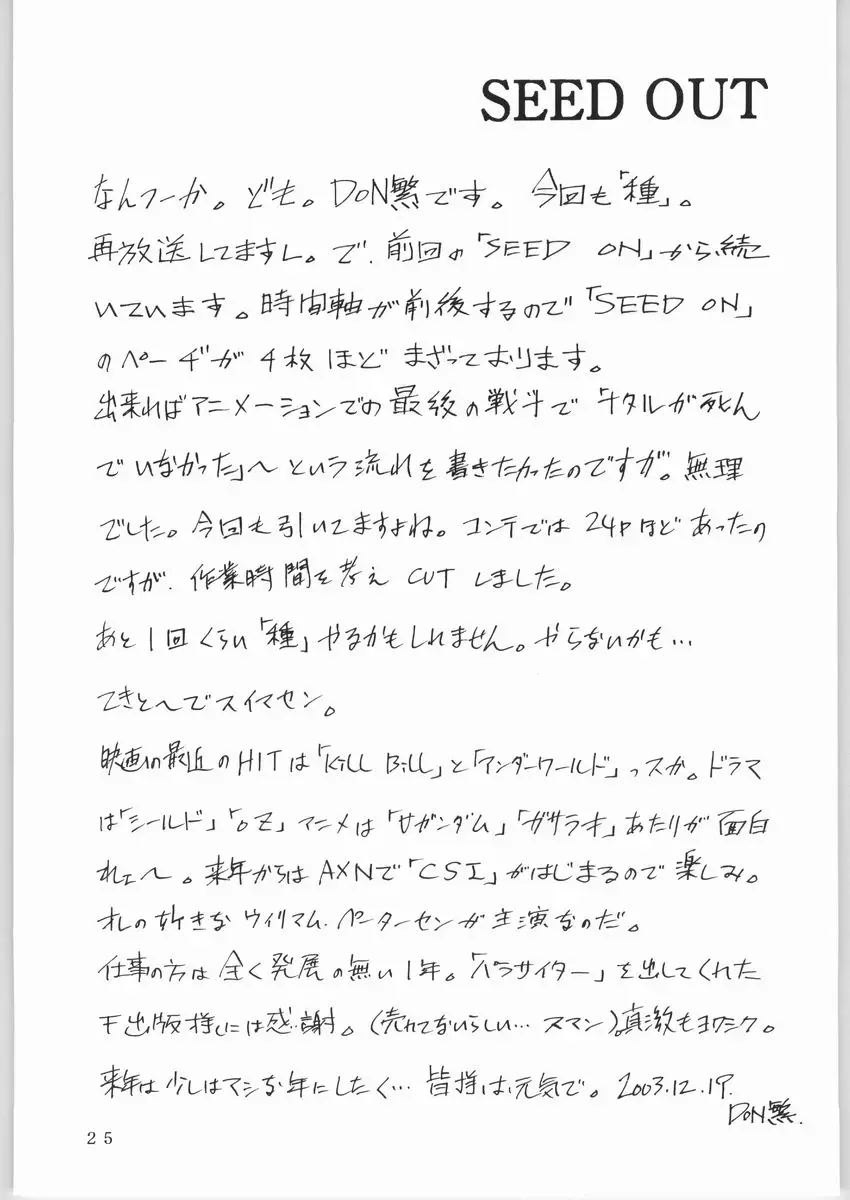 SEED OUT
なんつーか。ども。DON繁です。今回も「種」。
再放送してますし。で、前回の「SEED ON」から続
いています。時間軸が前後するので「SEED ON」
のページが4枚ほどまざっております。
出来ればアニメーションでの最後の戦斗で「ナタルが死ん
でいなかった」〜という流れを書きたかったのですが。無理
でした。今回も引いてますよね。コンテでは24Pほどあったの
ですが、作業時間を考えCUTしました。
あと1回くらい「種」やるかもしれません。やらないかも…
てきと〜でスイマセン。
映画の最近のHITは「Kill Bill」と「アンダーワールド」っスか。ドラマ
は「シールド」「OZ」アニメは「サガンダム」「ガサラキ」あたりが面白
れェ〜。来年からはAXNで「CSI」がはじまるので楽しみ。
オレの好きなウィリアム.ペーターセンが主演なのだ。
仕事の方は全く発展の無い1年。「パラサイター」を出してくれた
出版様には感謝。(売れてないらしい…スマン)真激もヨロシク。
来年は少しはマシな年にしたく…皆様は元気で。2003.12.19.
DON繁.
25